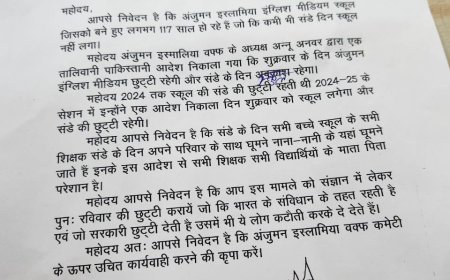 महोदय,
आपसे निवेदन है कि अंजुमन इस्लामिया इंग्लिश मीडियम स्कूल
जिसको बने हुए लगभग 117 साल हो रहे हैं जो कि कभी भी संडे दिन स्कूल
नहीं लगा।
महोदय अंजुमन इस्मालिया वक्फ के अध्यक्ष अन्नू अनवर द्वारा एक
तालिवानी पाकिस्तानी आदेश निकाला गया कि शुक्रवार के दिन अंजुमन
इंग्लिश मीडियम छुट्टी रहेगी और संडे के दिन रहेगा।
महोदय 2024 तक स्कूल की संडे की छुट्टी रहती थी 2024-25 के
सेशन में इन्होंने एक आदेश निकाला दिन शुक्रवार को स्कूल लगेगा और
संडे की छुट्टी रहेगी।
महोदय आपसे निवेदन है कि संडे के दिन सभी बच्चे स्कूल के सभी
शिक्षक संडे के दिन अपने परिवार के साथ घूमने नाना-नानी के यहां घूमने
जाते हैं इनके इस आदेश से सभी शिक्षक सभी विद्यार्थियों के माता पिता
परेशान है।
महोदय आपसे निवेदन है कि आप इस मामले को संज्ञान में लेकर
पुनः रविवार की छुट्टी करायें जो कि भारत के संविधान के तहत रहती है
एवं जो सरकारी छुट्टी देती है उसमें भी ये लोग कटौती करके दे देते हैं।
महोदय अतः आपसे निवेदन है कि अंजुमन इस्लामिया वक्फ कमेटी
के ऊपर उचित कार्यवाही करने की कृपा करें।